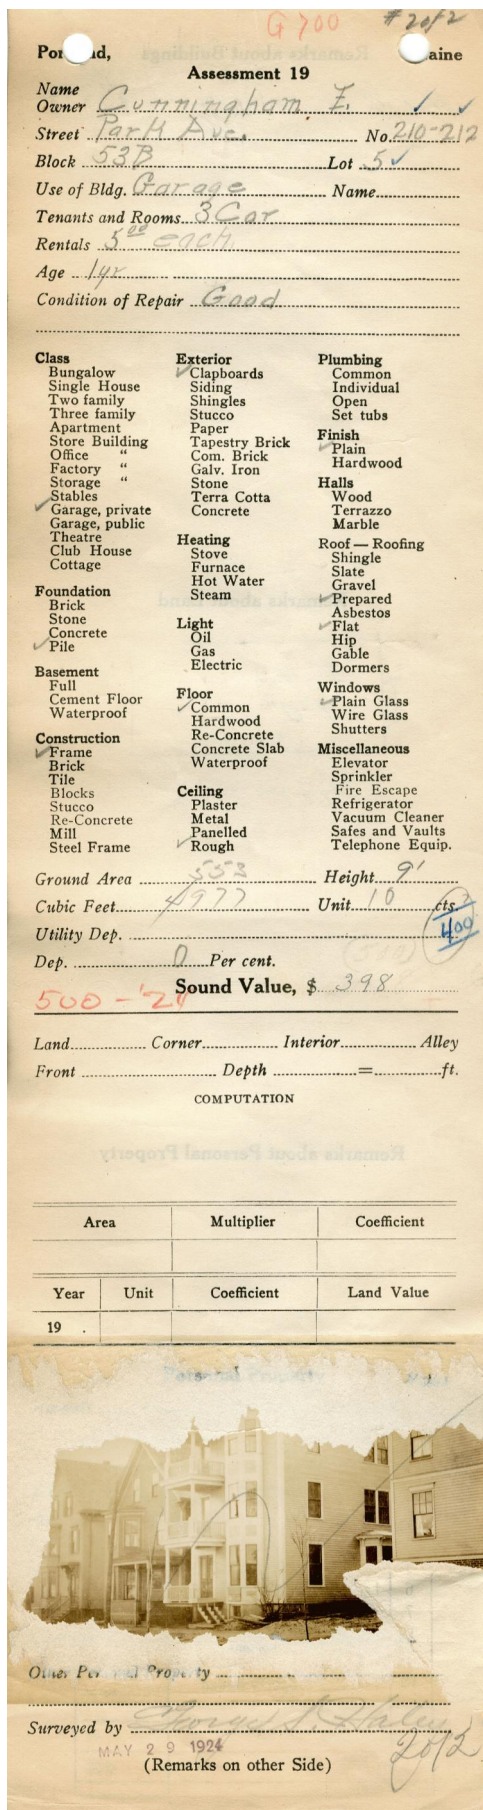 G 700
# 2 of 2
Portland, Maine
Assessment 19
Name
Owner Cunningham, E.
Street Park Ave. No. 210-212
Block 53B Lot 5
Use of Bldg. Garage Name
Tenants and Rooms 3 Car
Rentals 5 00 each
Age 1 yr
Condition of Repair Good
Class
Bungalow
Single House
Two family
Three family
Apartment
Store Building
Office "
Factory "
Storage "
Stables
Garage, private
Garage, public
Theatre
Club House
Cottage
Foundation
Brick
Stone
Concrete
Pile
Basement
Full
Cement Floor
Waterproof
Construction
Frame
Brick
Tile
Blocks
Stucco
Re-Concrete
Mill
Steel Frame
Exterior
Clapboards
Siding
Shingles
Stucco
Paper
Tapestry Brick
Com. Brick
Galv. Iron
Stone
Terra Cotta
Concrete
Heating
Stove
Furnace
Hot Water
Steam
Light
Oil
Gas
Electric
Floor
Common
Hardwood
Re-Concrete
Concrete Slab
Waterproof
Ceiling
Plaster
Metal
Panelled
Rough
Plumbing
Common
Individual
Open
Set tubs
Finish
Plain
Hardwood
Halls
Wood
Terrazzo
Marble
Roof — Roofing
Shingle
Slate
Gravel
Prepared
Asbestos
Flat
Hip
Gable
Dormers
Windows
Plain Glass
Wire Glass
Shutters
Miscellaneous
Elevator
Sprinkler
Fire Escape
Refrigerator
Vacuum Cleaner
Safes and Vaults
Telephone Equip.
Ground Area 553 Height 9'
Cubic Feet 4977 Unit 10 cts.
400
Utility Dep.
Dep. 0 Per cent.
Sound Value, $ 398
500 - '24
Land Corner Interior Alley
Front Depth = ft.
COMPUTATION
Area Multiplier Coefficient
Year Unit Coefficient Land Value
19 .
Other Personal Property
Surveyed by George S. Haley
MAY 29 1924
2 of 2
(Remarks on other Side)